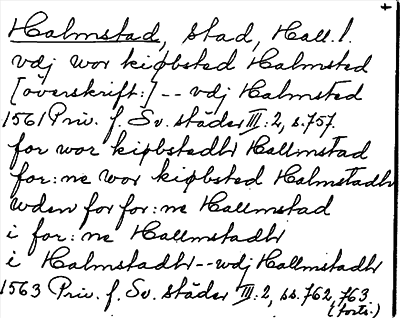 Halmstad, stad, Hall. l.
vdj wor kiøbsted Halmsted
[överskrift:] -- vdj Halmsted
1561 Priv. f. Sv. städer III: 2, s. 757.
for wor kiøbstedhr Hallmstad
for:ne wor kiøbsted Halmstadhr
wden for for:ne Hallmstad
i for:ne Hallmstadhr
i Halmstadhr -- wdj Hallmstadhr
1563 Priv. f. Sv. städer III: 2, ss. 762, 763.
(forts.)